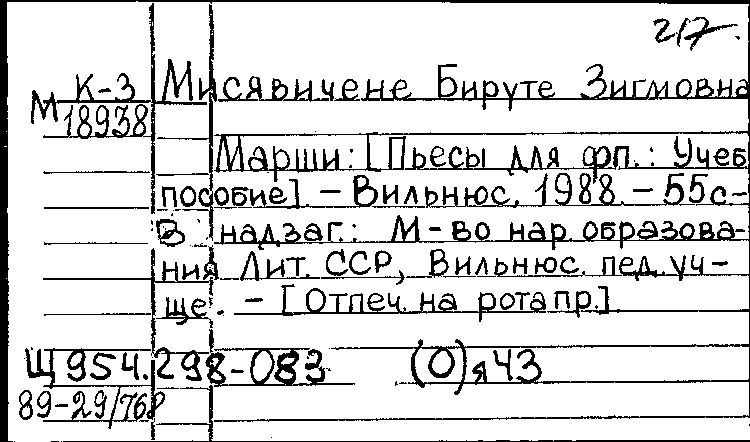 217.
К-3 Мисявичене Бируте Зигмовна
М 18938
Марши: [Пьесы для фп. : Учеб.
пособие]. – Вильнюс, 1988. – 55с–
В надзаг.: М-во нар. образова-
ния Лит. ССР, Вильнюс. пед. уч-
ще. – [Отпеч. на ротапр.].
Щ954.298-083 (О)я43
89-29/768